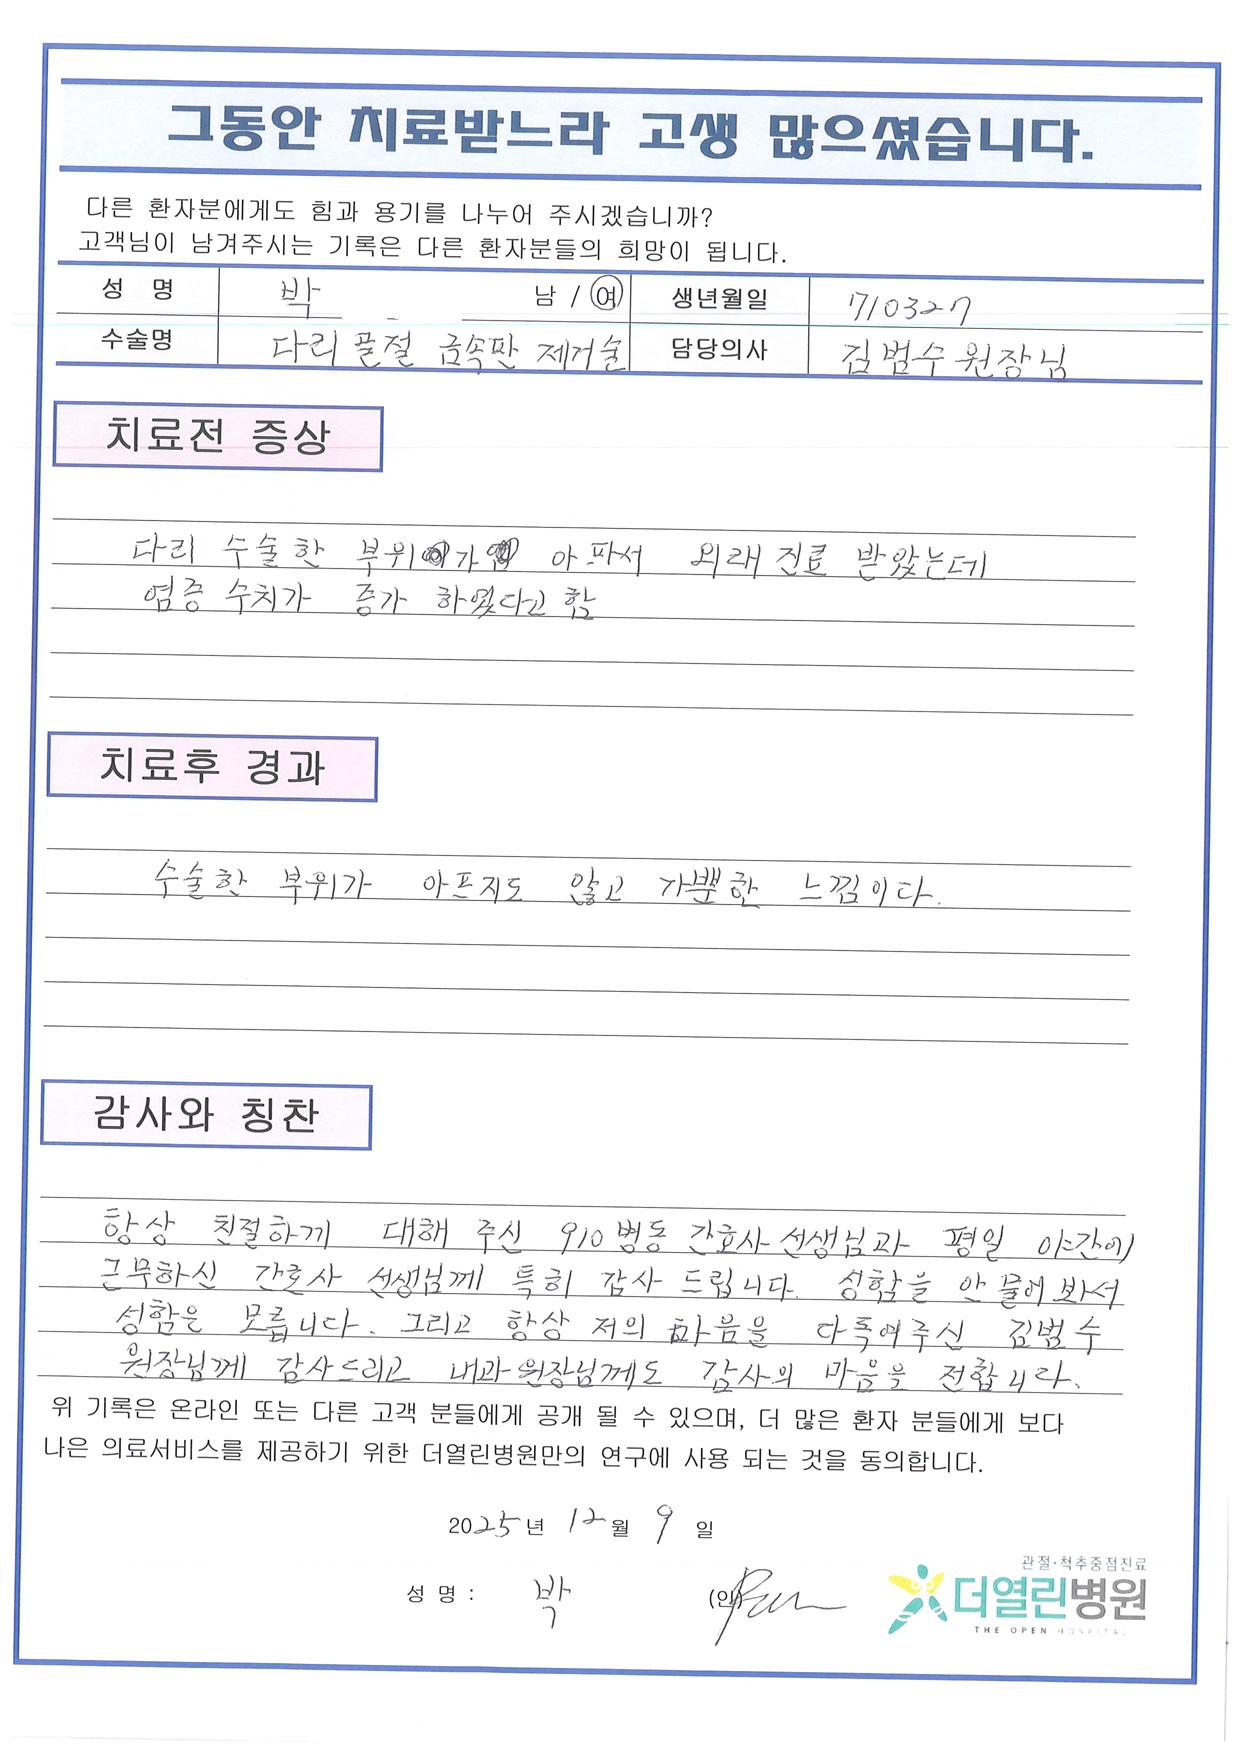 그동안 치료받느라 고생 많으셨습니다.
다른 환자분에게도 힘과 용기를 나누어 주시겠습니까?
고객님이 남겨주시는 기록은 다른 환자분들의 희망이 됩니다.
성 명 박 남 / 여 생년월일 710327
수술명 다리 골절 금속판 제거술 담당의사 김범수 원장님
치료전 증상
다리 수술한 부위가 아파서 외래 진료 받았는데
염증 수치가 증가 하였다고 함
치료후 경과
수술한 부위가 아프지도 않고 가뿐한 느낌이다.
감사와 칭찬
항상 친절하게 대해 주신 910병동 간호사 선생님과 평일 야간에
근무하신 간호사 선생님께 특히 감사 드립니다. 성함을 안 물어봐서
성함은 모릅니다. 그리고 항상 저의 마음을 다독여주신 김범수
원장님께 감사드리고 내과 원장님께도 감사의 마음을 전합니다.
위 기록은 온라인 또는 다른 고객 분들에게 공개 될 수 있으며, 더 많은 환자 분들에게 보다
나은 의료서비스를 제공하기 위한 더열린병원만의 연구에 사용 되는 것을 동의합니다.
2025년 12월 9일
성 명 : 박 (인)
관절·척추중점진료
더열린병원
THE OPEN HOSPITAL